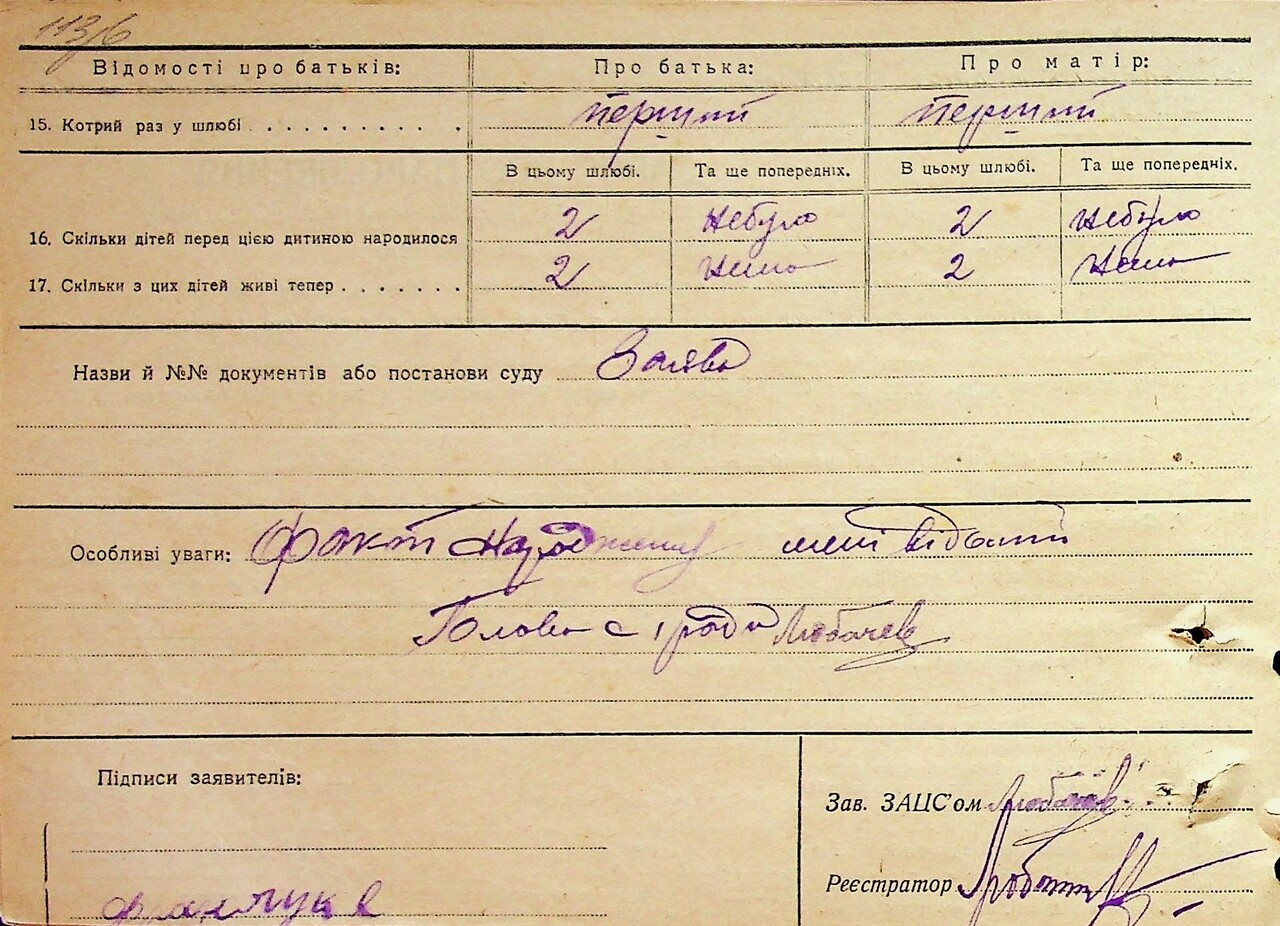 113/6
Відомості про батьків: Про батька: Про матір:
15. Котрий раз у шлюбі перший перший
В цьому шлюбі. Та ще попередніх. В цьому шлюбі. Та ще попередніх.
16. Скільки дітей перед цією дитиною народилося 2 небуло 2 небуло
17. Скільки з цих дітей живі тепер 2 нема 2 нема
Назви й №№ документів або постанови суду Заява
Особливі уваги: Факт народження мені відомий
Голова с/ради Любачев
Підписи заявителів:
Зав. ЗАЦС'ом
Реєстратор